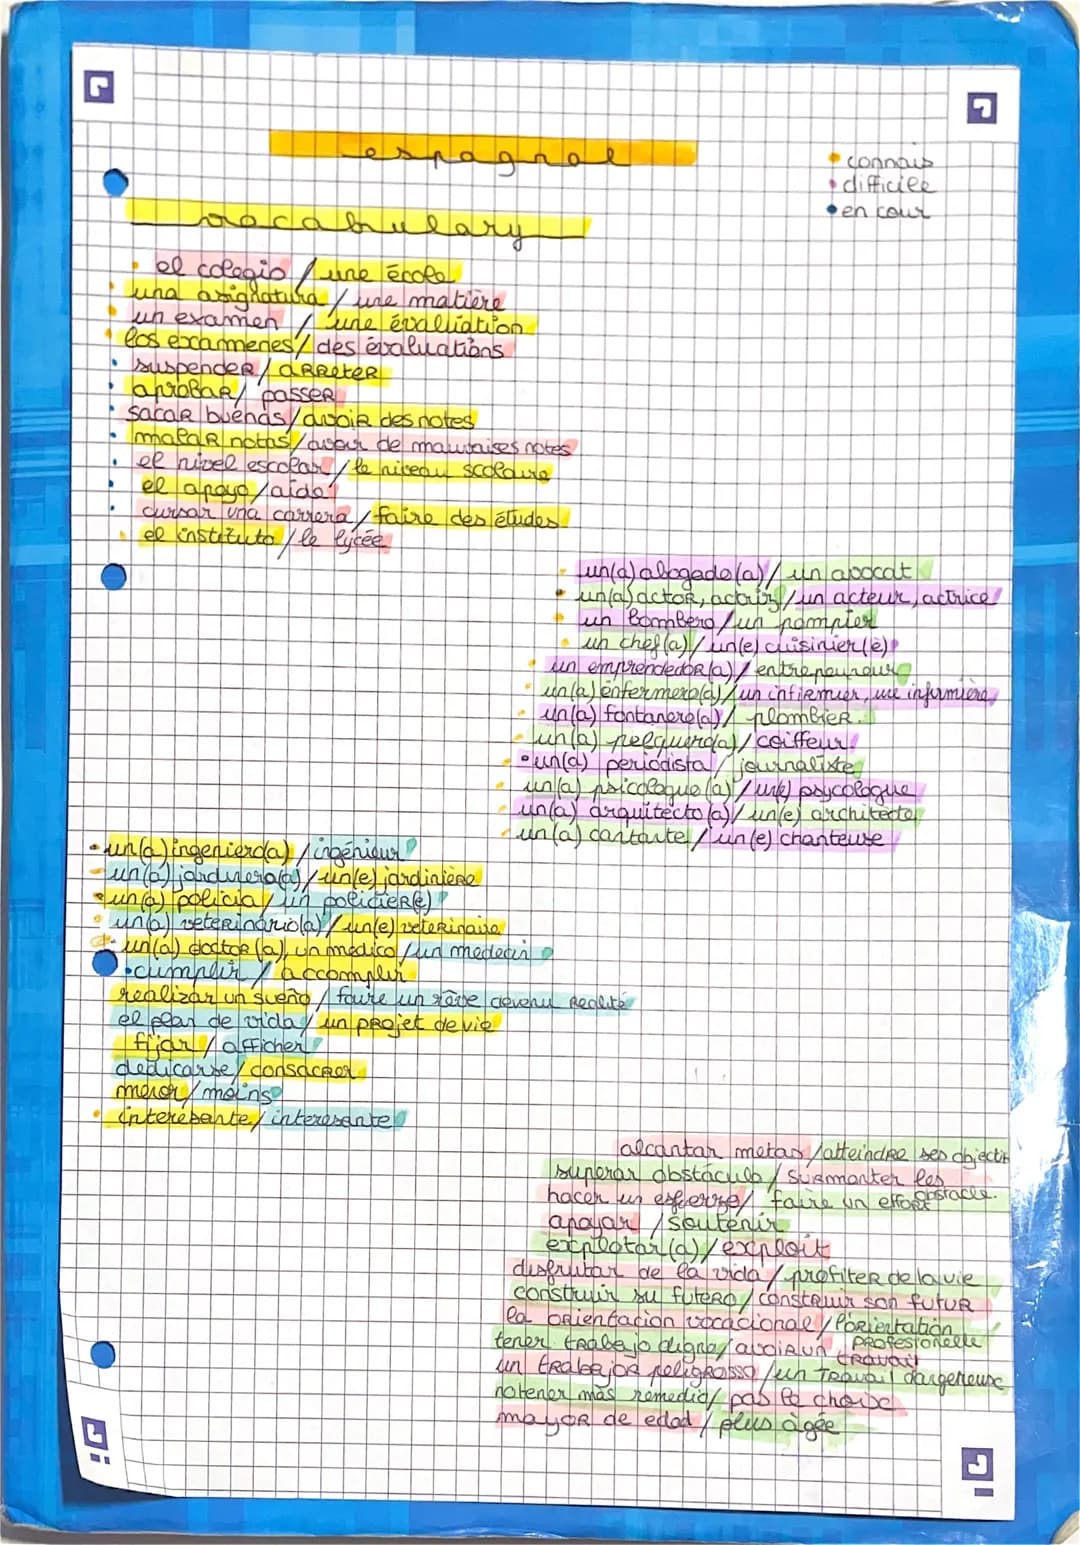 espagnol
• connais
• difficile
• en cour
vocabulary
el colegio / une école
una asignatura / une matière
un examen / une évaluation
los examenes / des évaluations
suspender / arrêter
aprobar / passer
sacar buenas / avoir des notes
malar notas / avoir de mauvaises notes
el nivel escolar / le niveau scolaire
el apoyo / aide
cursar una carrera / faire des études
el instituto / le lycée
un(a) abogado(a) / un avocat
un(a) actor, actriz / un acteur, actrice
un bombero / un pompier
un chef(a) / un(e) cuisinier(è)
un emprendedor(a) / entrepeuneur
un(a) enfermero(a) / un infirmier, une infirmière
un(a) fontanero(a) / plombier
un(a) peluquero(a) / coiffeur
un(a) periodista / journaliste
un(a) psicologue(a) / un(e) psycologue
un(a) arquitecto(a) / un(e) architecte
un(a) cantante / un(e) chanteuse
un(a) ingeniero(a) / ingénieur
un(a) jardinero(a) / un(e) jardinière
un(a) policia / un policier(e)
un(a) veterinario(a) / un(e) veterinaire
un(a) doctor(a), un medico / un medecin
cumplir / accomplir
realizar un sueño / faire un rêve devenu realité
el plan de vida / un projet de vie
fijar / afficher
dedicarse / consacrer
menor / moins
interesante / interesante
alcantar metas / atteindre ses objectif
superar obstáculo / surmonter les obstacle.
hacer un esfuerzo / faire un effort
apoyar / soutenir
explotar(a) / exploit
disfrutar de la vida / profiter de la vie
construir su futuro / construir son futur
la orientación vocacional / l'orientation profesionelle
tener trabajo digno / avoir un travail
un trabajor peligrosso / un travail dangereux
no tener más remedio / pas le choix
mayor de edad / plus âgée